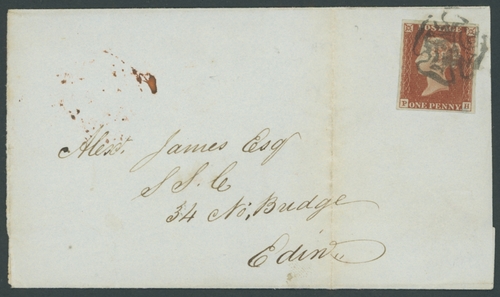 POSTAGE
ONE PENNY
Alexr. James Esq
S.S.C
54 No. Bridge
Edinr.